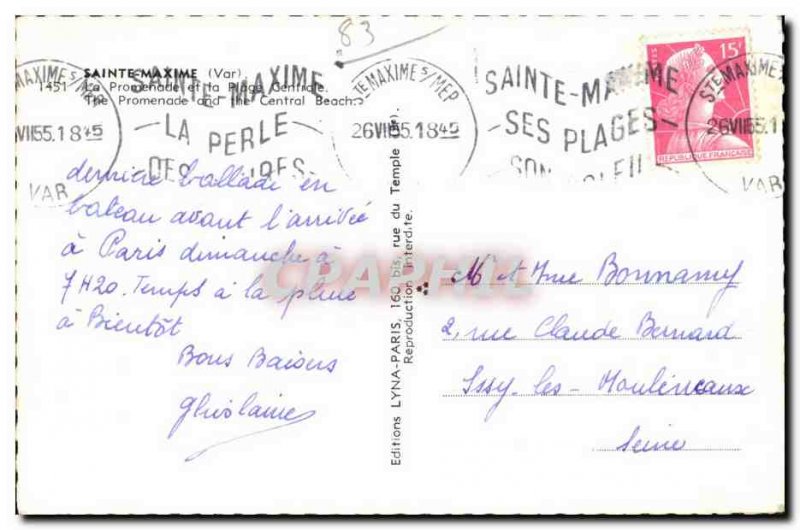 83
SAINTE-MAXIME (Var)
1451 La Promenade et la Plage Centrale.
The Promenade and the Central Beach.
STE MAXIME S/MER
VAR
VII55.1845
SAINTE-MAXIME
LA PERLE
DES
STE MAXIME S/MER
26VII55.1845
SAINTE-MAXIME
SES PLAGES
SON SOLEIL
15F
REPUBLIQUE FRANÇAISE
STE MAXIME S/MER
26VII55.1
VAR
dernière ballade en
bateau avant l'arrivée
à Paris dimanche à
7H20. Temps à la pluie
à Bientôt
Bons Baisers
Ghislaine
Editions LYNA-PARIS, 160 bis, rue du Temple (3e).
Reproduction interdite.
CPARPHIL
M et Mme Bonnamy
2, rue Claude Bernard
Issy-les-Moulineaux
Seine